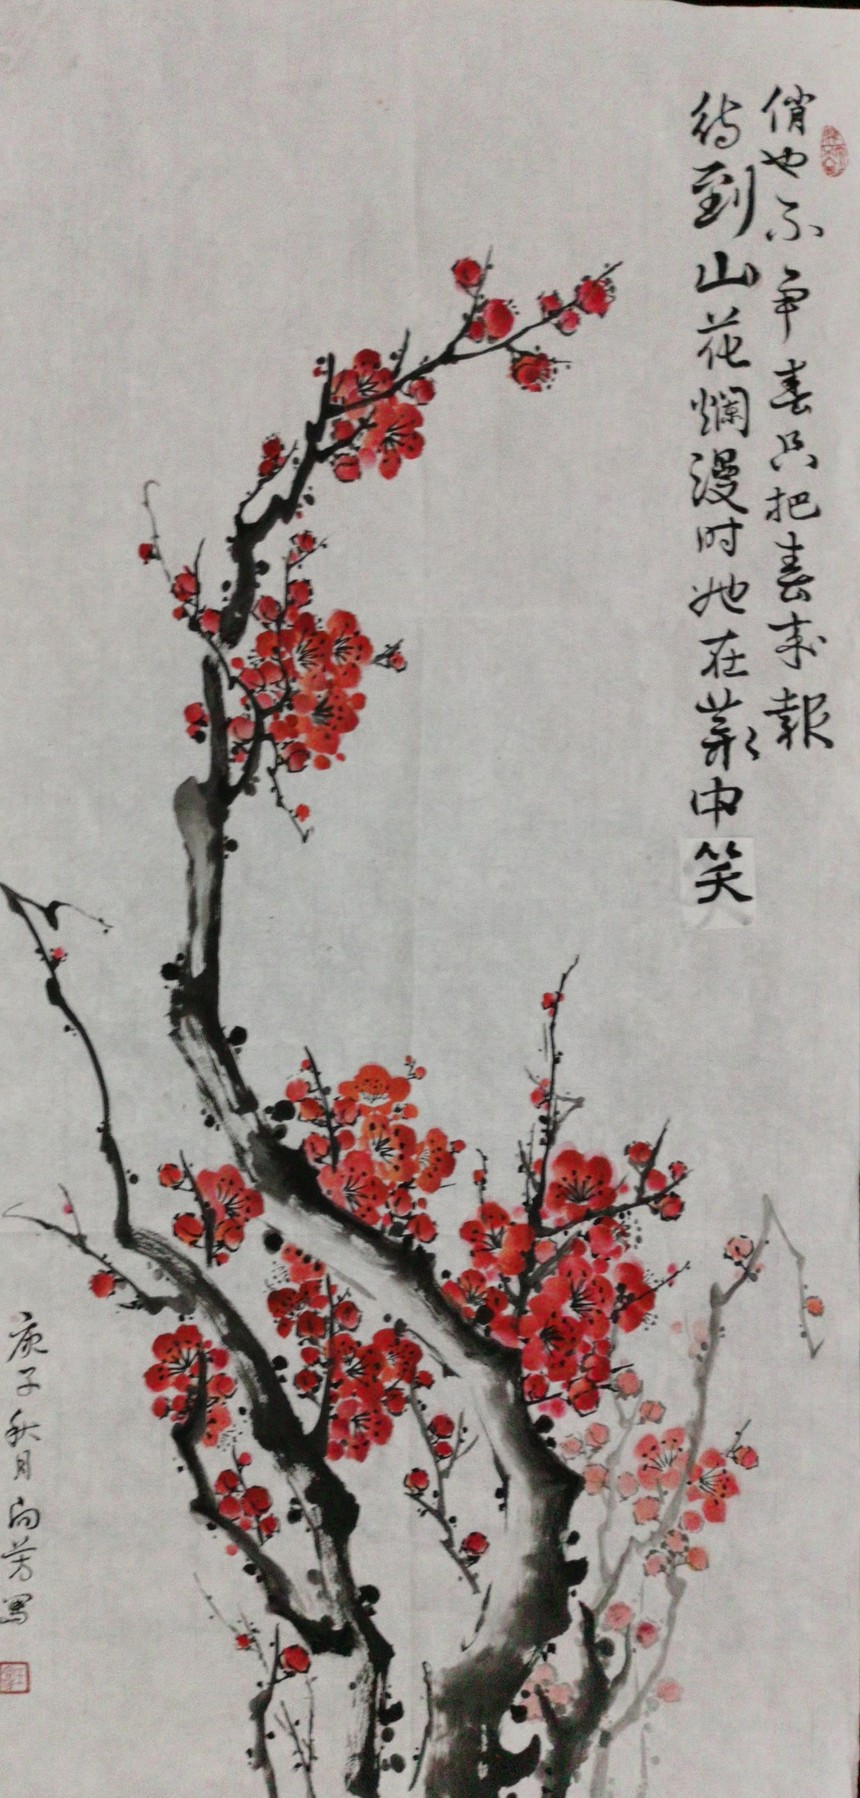 俏也不争春只把春来報
待到山花爛漫时她在叢中笑
庚子秋月向芳寫